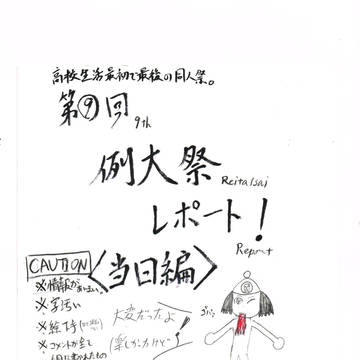 高校生活最初で最後の同人祭。
第⑨回
9th
例大祭
Reitaisai
レポート!
Report
〈当日編〉
CAUTION
※情報が
※字汚い
※絵下手
※コメントが全て
大変だったよ
楽しかったけどー!